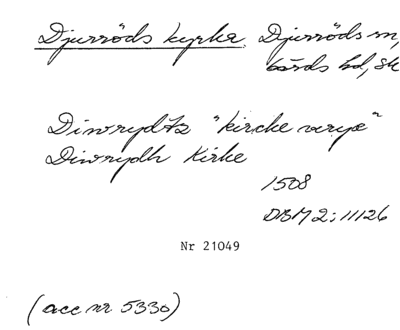 Djurröds kyrka, Djurröds sn,
Gärds hd, Sk
Diwrydtz "kircke verye"
Diwrydh Kirke
1508
DBM 2: 11126
Nr 21049
(acc nr 5330)